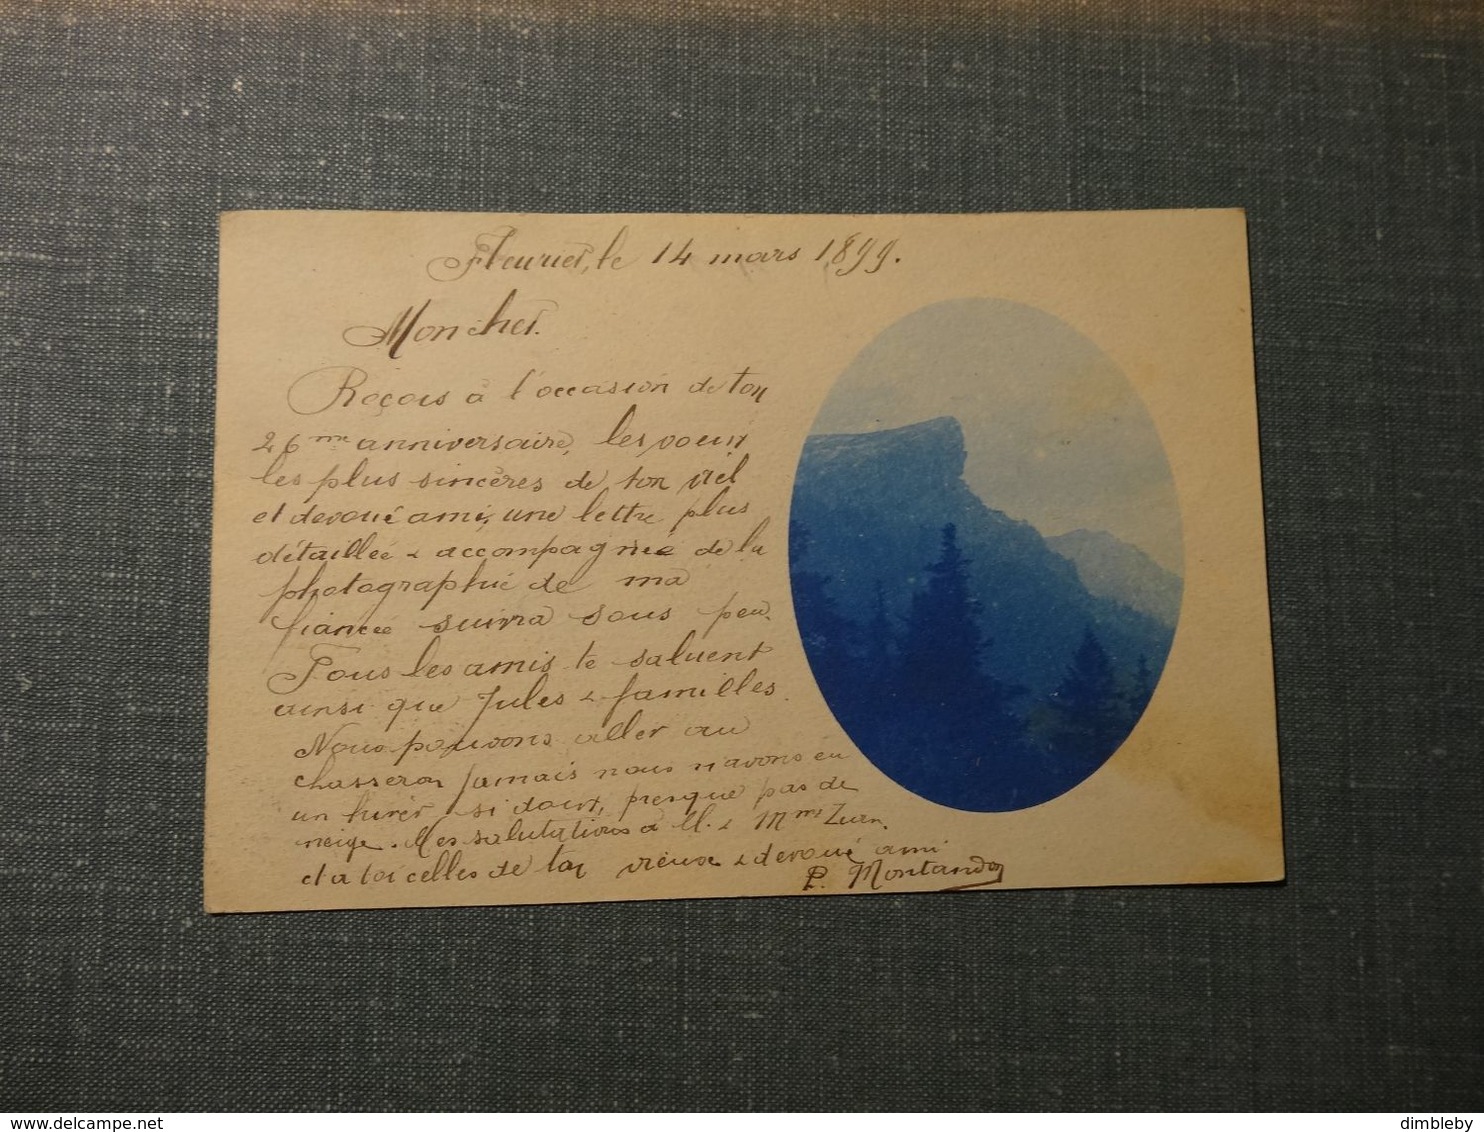 Fleurier, le 14 mars 1899.
Mon cher.
Reçois à l'occasion de ton
26me anniversaire, les voeux
les plus sincères de ton viel
et devoué ami, une lettre plus
détaillée & accompagnée de la
photographie de ma
fiancée suivra sous peu.
Tous les amis te saluent
ainsi que Jules & familles.
Nous pouvons aller au
chasseron jamais nous n'avons eu
un hiver si doux, presque pas de
neige. Mes salutations à M. & Mme Zurn.
et a toi celles de ton vieux & devoué ami
P. Montandon
www.delcampe.net
dimbleby